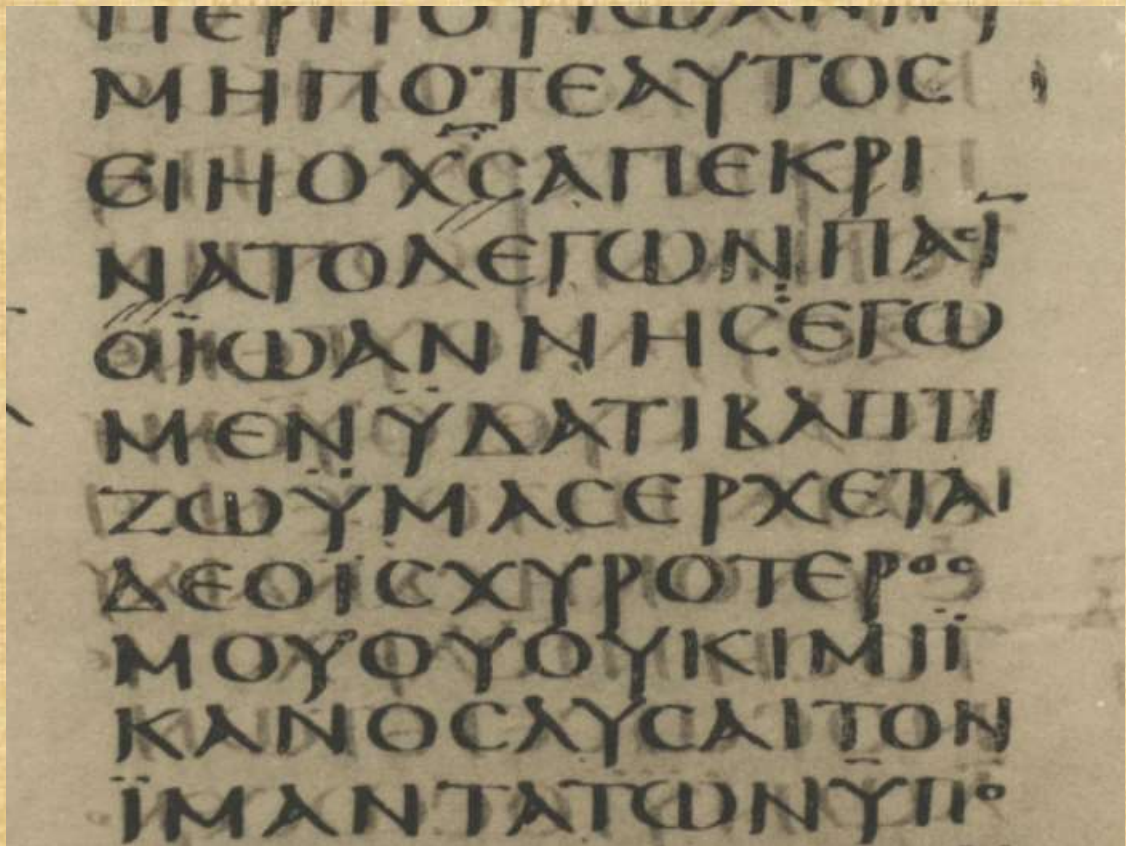 ΠΕΡΙΤΟΥΙΩΑΝΝΟΥ
ΜΗΠΟΤΕΑΥΤΟΣ
ΕΙΗΟΧ̅Σ̅ΑΠΕΚΡΙ
ΝΑΤΟΛΕΓΩΝΠΑΣΙ
ΟΪΩΑΝΝΗΣΕΓΩ
ΜΕΝΫΔΑΤΙΒΑΠΤΙ
ΖΩΫΜΑΣΕΡΧΕΤΑΙ
ΔΕΟΪΣΧΥΡΟΤΕΡΟΣ
ΜΟΥΟΥΟΥΚΙΜΙΪ
ΚΑΝΟΣΛΥΣΑΙΤΟΝ
ΪΜΑΝΤΑΤΩΝΫΠΟ